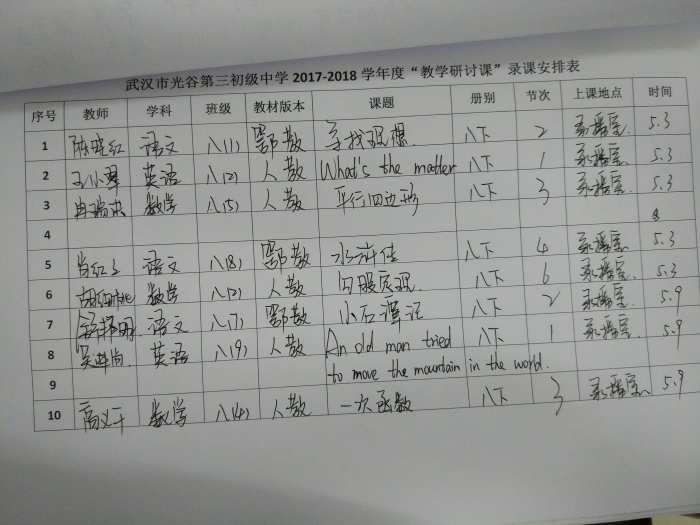 武汉市光谷第三初级中学 2017-2018 学年度“教学研讨课”录课安排表
序号 教师 学科 班级 教材版本 课题 册别 节次 上课地点 时间
1 陈晓红 语文 八(1) 鄂教 寻找理想 八下 2 录播室 5.3
2 王小琴 英语 八(2) 人教 What's the matter 八下 1 录播室 5.3
3 数学 八(5) 人教 平行四边形 八下 3 录播室 5.3
4 8
5 语文 八(8) 鄂教 水浒传 八下 4 录播室 5.3
6 数学 八(2) 人教 勾股定理 八下 6 录播室 5.3
7 语文 八(7) 鄂教 小石潭记 八下 2 录播室 5.9
8 英语 八(9) 人教 An old man tried 八下 1 录播室 5.9
9 to move the mountain in the world.
10 高义千 数学 八(4) 人教 一次函数 八下 3 录播室 5.9